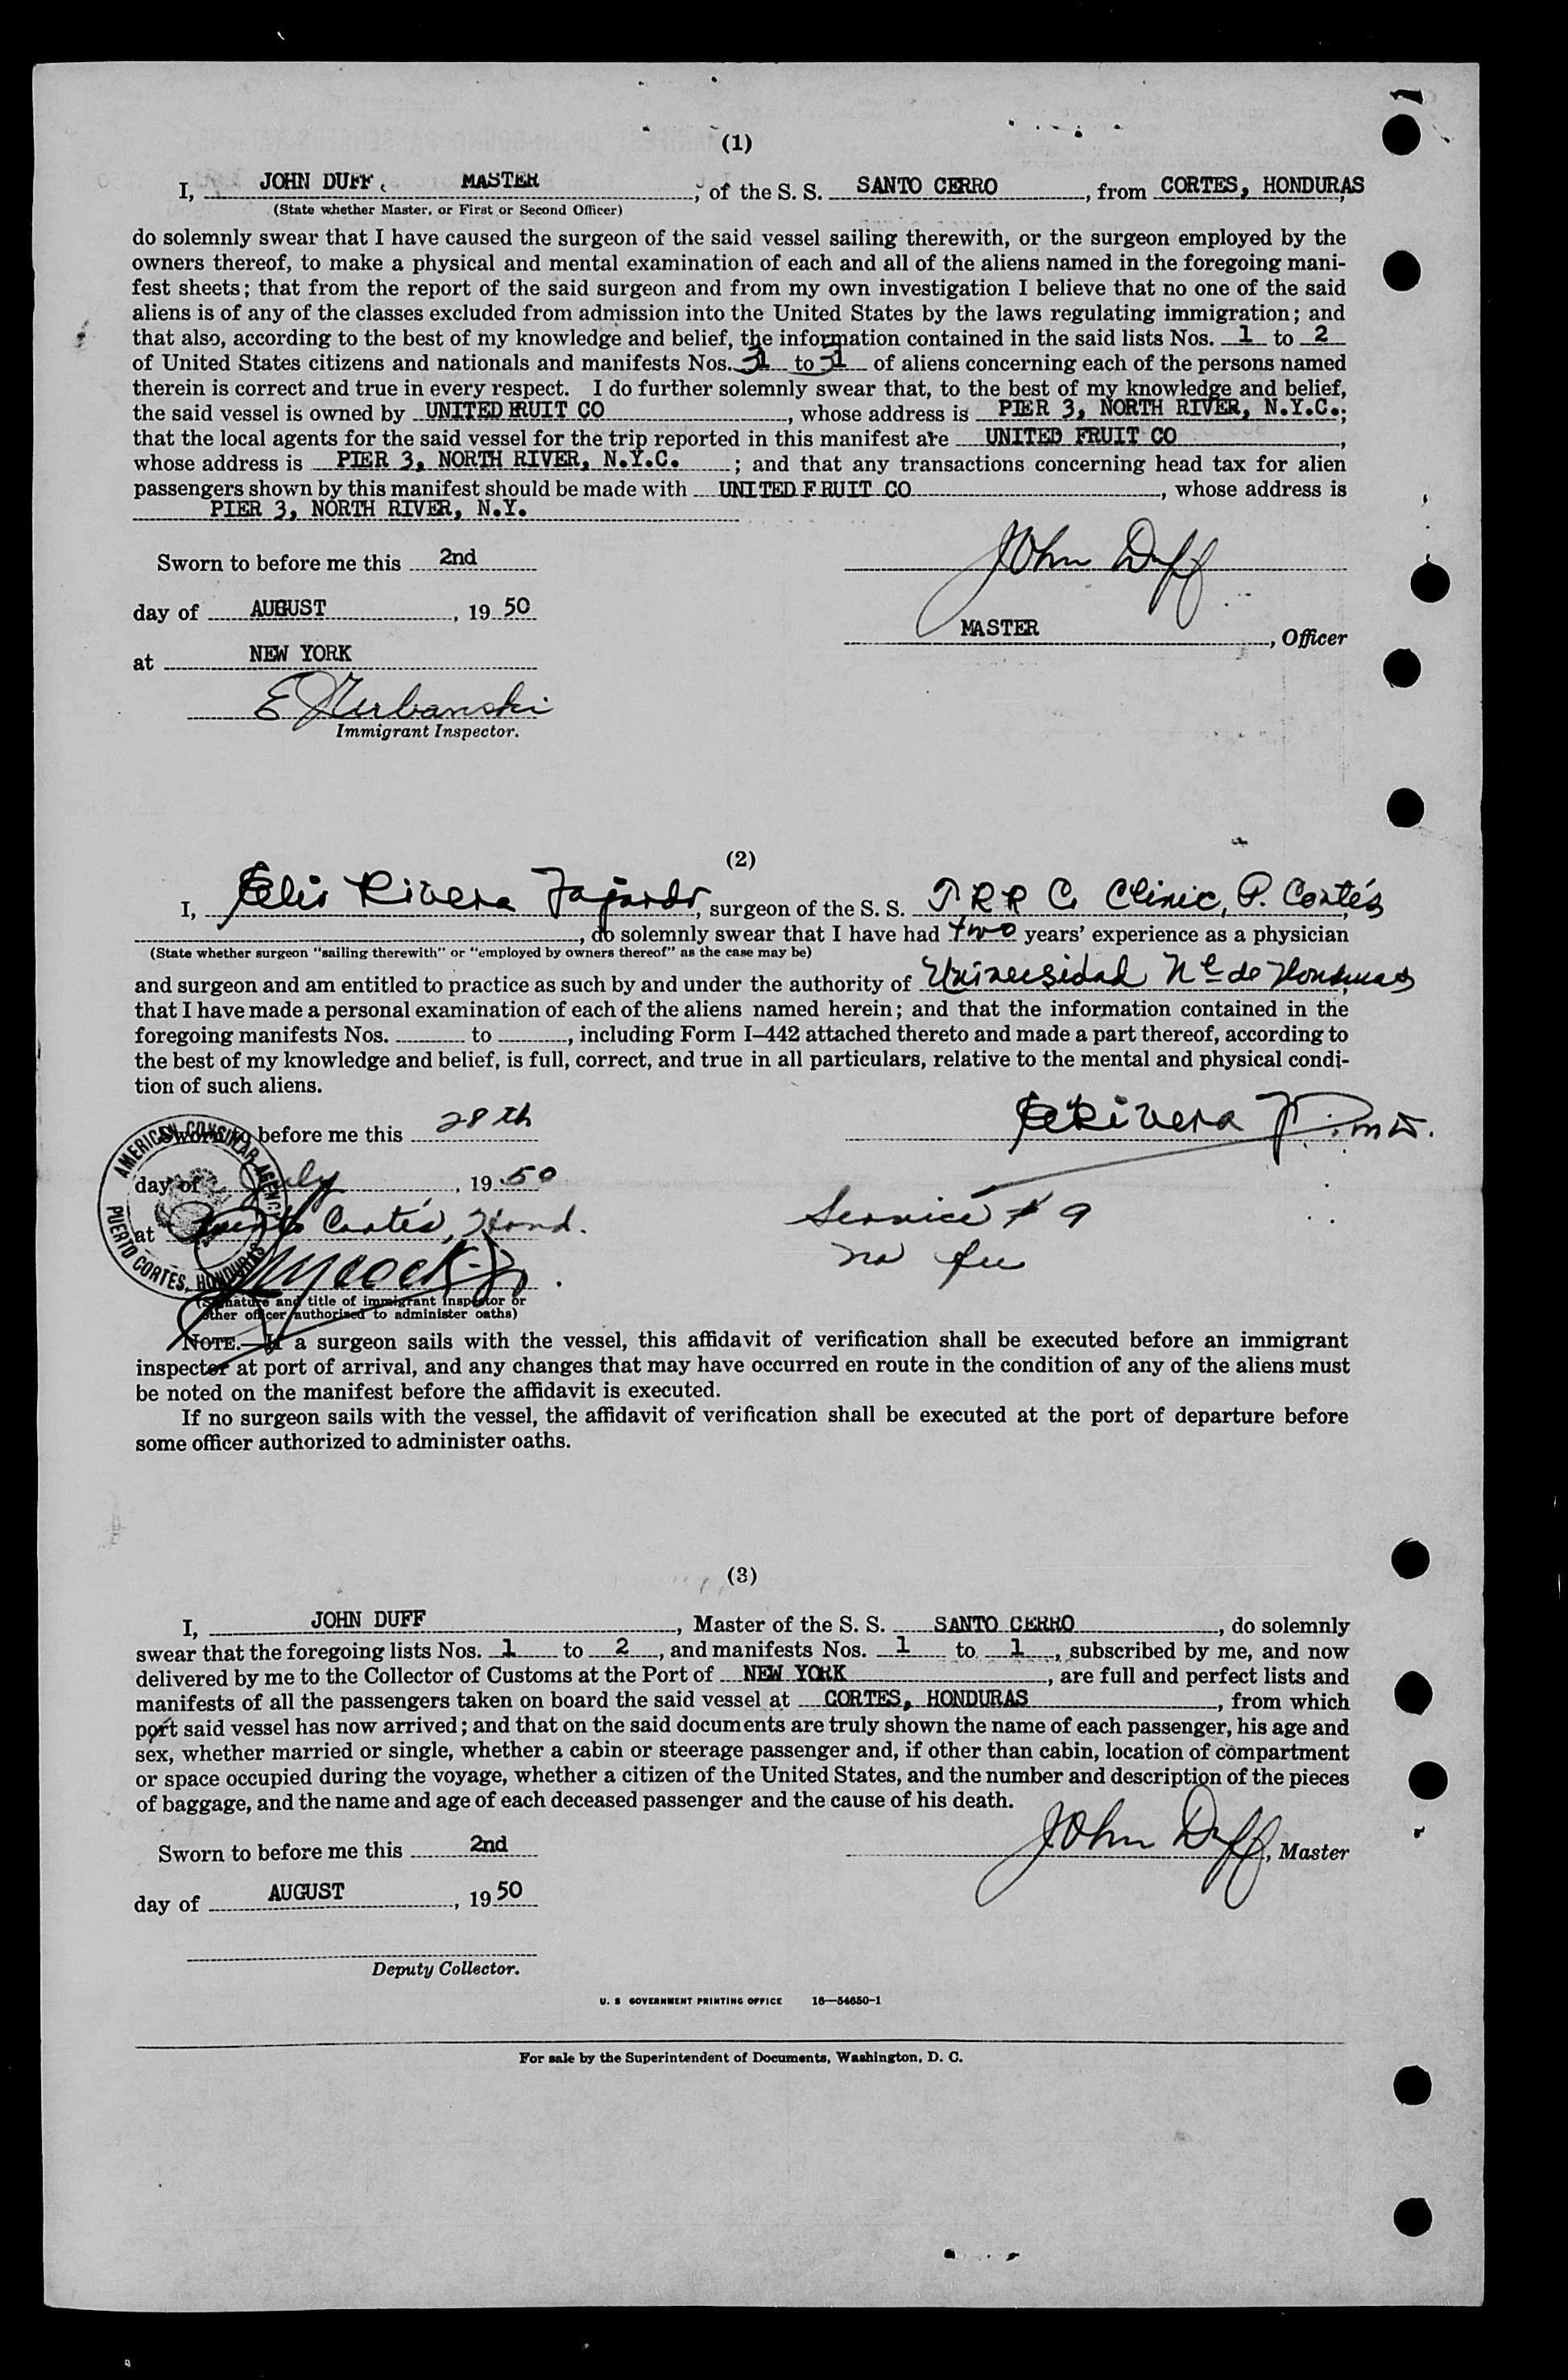 (1)
I, JOHN DUFF, MASTER, of the S. S. SANTO CERRO, from CORTES, HONDURAS,
(State whether Master, or First or Second Officer)
do solemnly swear that I have caused the surgeon of the said vessel sailing therewith, or the surgeon employed by the
owners thereof, to make a physical and mental examination of each and all of the aliens named in the foregoing mani-
fest sheets; that from the report of the said surgeon and from my own investigation I believe that no one of the said
aliens is of any of the classes excluded from admission into the United States by the laws regulating immigration; and
that also, according to the best of my knowledge and belief, the information contained in the said lists Nos. 1 to 2
of United States citizens and nationals and manifests Nos. 31 to 31 of aliens concerning each of the persons named
therein is correct and true in every respect. I do further solemnly swear that, to the best of my knowledge and belief,
the said vessel is owned by UNITED FRUIT CO, whose address is PIER 3, NORTH RIVER, N.Y.C.;
that the local agents for the said vessel for the trip reported in this manifest are UNITED FRUIT CO,
whose address is PIER 3, NORTH RIVER, N.Y.C.; and that any transactions concerning head tax for alien
passengers shown by this manifest should be made with UNITED FRUIT CO, whose address is
PIER 3, NORTH RIVER, N.Y.
Sworn to before me this 2nd
John Duff
day of AUGUST, 1950
MASTER, Officer
at NEW YORK
E Urbanski
Immigrant Inspector.
(2)
I, Rivera Fajardo, surgeon of the S. S. T.R.R. Co Clinic, P. Cortés
, do solemnly swear that I have had two years' experience as a physician
(State whether surgeon "sailing therewith" or "employed by owners thereof" as the case may be)
and surgeon and am entitled to practice as such by and under the authority of Universidad Nl de Honduras
that I have made a personal examination of each of the aliens named herein; and that the information contained in the
foregoing manifests Nos. to , including Form I–442 attached thereto and made a part thereof, according to
the best of my knowledge and belief, is full, correct, and true in all particulars, relative to the mental and physical condi-
tion of such aliens.
Sworn to before me this 28th
Rivera F. M.D.
AMERICAN CONSULAR AGENCY
PUERTO CORTES, HONDURAS
day of July, 1950
at Puerto Cortés, Hond.
Service # 9
no fee
(Signature and title of immigrant inspector or
other officer authorized to administer oaths)
NOTE.—If a surgeon sails with the vessel, this affidavit of verification shall be executed before an immigrant
inspector at port of arrival, and any changes that may have occurred en route in the condition of any of the aliens must
be noted on the manifest before the affidavit is executed.
If no surgeon sails with the vessel, the affidavit of verification shall be executed at the port of departure before
some officer authorized to administer oaths.
(3)
I, JOHN DUFF, Master of the S. S. SANTO CERRO, do solemnly
swear that the foregoing lists Nos. 1 to 2, and manifests Nos. 1 to 1, subscribed by me, and now
delivered by me to the Collector of Customs at the Port of NEW YORK, are full and perfect lists and
manifests of all the passengers taken on board the said vessel at CORTES, HONDURAS, from which
port said vessel has now arrived; and that on the said documents are truly shown the name of each passenger, his age and
sex, whether married or single, whether a cabin or steerage passenger and, if other than cabin, location of compartment
or space occupied during the voyage, whether a citizen of the United States, and the number and description of the pieces
of baggage, and the name and age of each deceased passenger and the cause of his death.
Sworn to before me this 2nd
John Duff, Master
day of AUGUST, 1950
Deputy Collector.
U. S GOVERNMENT PRINTING OFFICE 16—54650-1
For sale by the Superintendent of Documents, Washington, D. C.